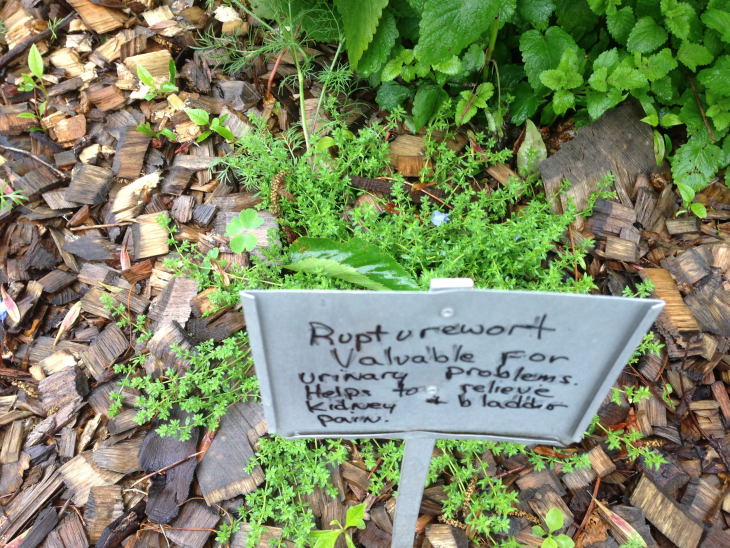 Rupturewort
Valuable for
urinary problems.
Helps to relieve
Kidney & bladder
pain.